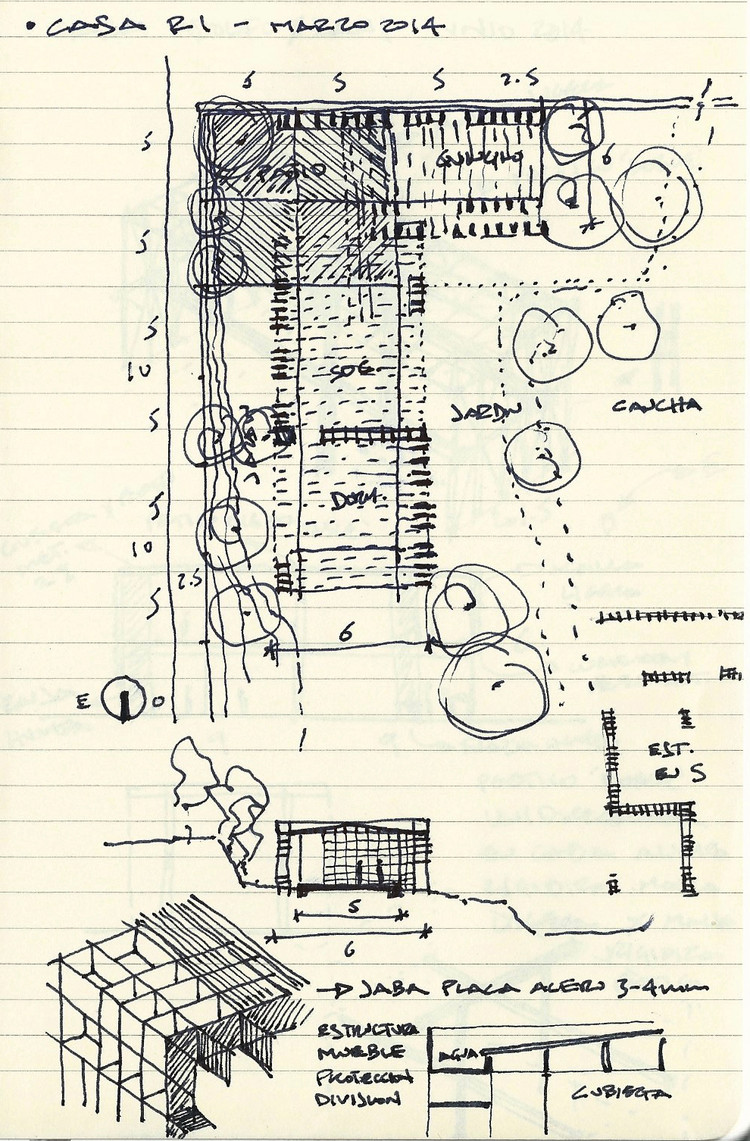 • CASA R1 - MARZO 2014
5 5 5 2.5
5
PATIO
QUINCHO
6
5
5
SOE
10
5
JARDIN
CANCHA
5
DORM.
10
2.5
5
6
E O
EST.
EN S
5
6
→ JABA PLACA ACERO 3-4mm
ESTRUCTURA
MUEBLE
PROTECCION
DIVISION
AGUA
CUBIERTA